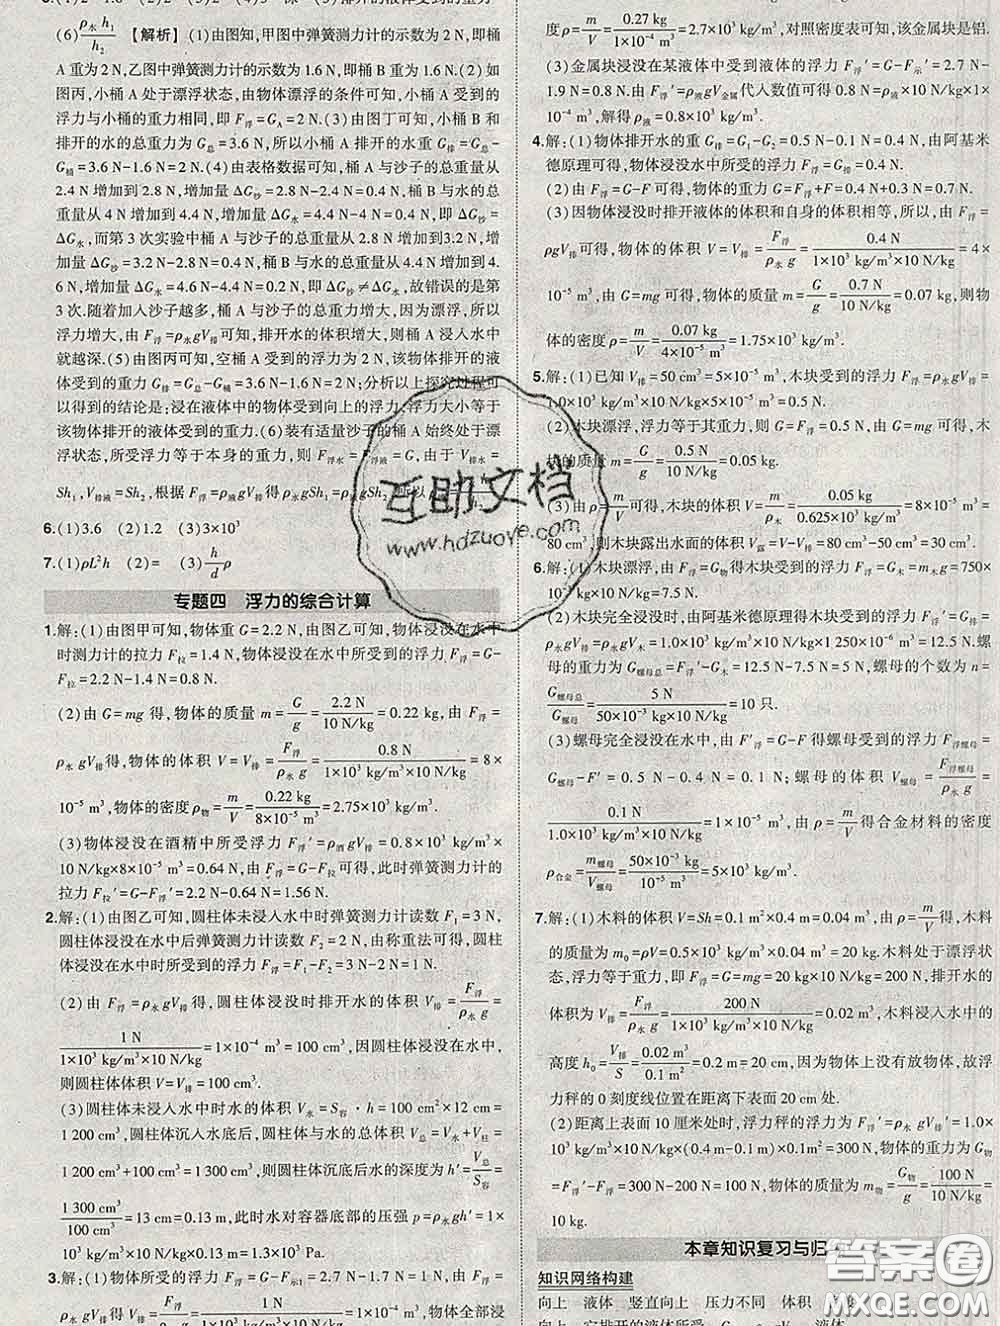 (6)ρ水h₁/h₂ 【解析】(1)由图知,甲图中弹簧测力计的示数为2 N,即桶
A重为2 N,乙图中弹簧测力计的示数为1.6 N,即桶重为1.6 N.(2)如
图丙,小桶A处于漂浮状态,由物体漂浮的条件可知,小桶A受到的
浮力与小桶的重力相同,即F浮=G_A=2 N.(3)由图丁可知,小桶和
排开的水的总重力为G总=3.6 N,所以小桶排开的水重G排=G总-
G桶=3.6 N-1.6 N=2 N.(4)由表格数据可知,桶A与沙子的总重量从
2.4 N增加到2.8 N,增加量ΔG沙=2.8 N-2.4 N=0.4 N,桶与水的总
重量从4 N增加到4.4 N,增加量ΔG水=4.4 N-4 N=0.4 N,即ΔG沙=
ΔG水,而第3次实验中桶A与沙子的总重量从2.8 N增加到3.2 N,增
加量ΔG沙=3.2 N-2.8 N=0.4 N,桶与水的总重量从4.4 N增加到4.
6 N,增加量ΔG水=4.6 N-4.4 N=0.2 N,即ΔG沙≠ΔG水,故错误的是第
3次.随着加入沙子越多,桶A与沙子的总重力增大,因为漂浮,所以
浮力增大,由F浮=ρ水gV排可知,排开水的体积增大,则桶A浸入水中
就越深.(5)由图丙可知,空桶A受到的浮力为2 N,该物体排开的液
体受到的重力G排=G总-G桶=3.6 N-1.6 N=2 N;分析以上探究过程可
以得到的结论是:浸在液体中的物体受到向上的浮力,浮力大小等于
该物体排开的液体受到的重力.(6)装有适量沙子的桶A始终处于漂
浮状态,所受浮力等于本身的重力,则F浮水=F浮液=G,由于V排水=
Sh₁,V排液=Sh₂,根据F浮=G排得ρ水gSh₁=ρ液gSh₂,所以ρ液=
6.(1)3.6 (2)1.2 (3)3×10³
7.(1)ρL²h (2)= (3)h/d ρ
专题四 浮力的综合计算
1.解:(1)由图甲可知,物体重G=2.2 N,由图乙可知,物体浸没在水中
时测力计的拉力F拉=1.4 N,物体浸没在水中所受到的浮力F浮=G-
F拉=2.2 N-1.4 N=0.8 N.
(2)由G=mg得,物体的质量m=G/g=2.2 N/10 N/kg=0.22 kg,由F浮
=ρ水gV排得,物体的体积V=V排=F浮/ρ水g=0.8 N/1×10³ kg/m³×10 N/kg=8×
10⁻⁵ m³,物体的密度ρ物=m/V=0.22 kg/8×10⁻⁵ m³=2.75×10³ kg/m³.
(3)物体浸没在酒精中所受浮力F浮′=ρ酒gV排=0.8×10³ kg/m³×
10 N/kg×8×10⁻⁵ m³=0.64 N,由F浮=G-F拉可得,此时弹簧测力计的
拉力F拉′=G-F浮′=2.2 N-0.64 N=1.56 N.
2.解:(1)由图乙可知,圆柱体未浸入水中时弹簧测力计读数F₁=3 N,
圆柱体浸没在水中后弹簧测力计读数F₂=2 N,由称重法可得,圆柱
体浸没在水中时所受到的浮力F浮=F₁-F₂=3 N-2 N=1 N.
(2)由F浮=ρ水gV排得,圆柱体浸没时排开水的体积V排=F浮/ρ水g=
1 N/1×10³ kg/m³×10 N/kg=1×10⁻⁴ m³=100 cm³,因圆柱体浸没在水中,
则圆柱体体积V=V排=100 cm³.
(3)圆柱体未浸入水中时水的体积V水=S容·h=100 cm²×12 cm=
1 200 cm³,圆柱体沉入水底后,圆柱体与水的总体积V总=V水+V柱=
1 200 cm³+100 cm³=1 300 cm³,则圆柱体沉底后水的深度为h′=V总/S容=
1 300 cm³/100 cm²=13 cm=0.13 m,此时水对容器底部的压强p=ρ水gh′=1×
10³ kg/m³×10 N/kg×0.13 m=1.3×10³ Pa.
3.解:(1)物体所受的浮力F浮=G-F示1=2.7 N-1.7 N=1 N.
度ρ=m/V=0.27 kg/1×10⁻⁴ m³=2.7×10³ kg/m³,对照密度表可知,该金属块是铝.
(3)金属块浸没在某液体中受到液体的浮力F浮′=G-F示′=2.7 N-
1.9 N=0.8 N,由F浮′=ρ液gV金属代入数值可得0.8 N=ρ液×10 N/kg×1×
10⁻⁴ m³,解得ρ液=0.8×10³ kg/m³.
4.解:(1)物体排开水的重G排=G₁-G₂=0.5 N-0.1 N=0.4 N,由阿基米
德原理可得,物体浸没水中所受的浮力F浮=G排=0.4 N.
(2)由F浮=G-F可得,物体的重力G=F浮+F=0.4 N+0.3 N=0.7 N.
(3)因物体浸没时排开液体的体积和自身的体积相等,所以,由F浮=
ρgV排可得,物体的体积V=V排=F浮/ρ水g=0.4 N/1×10³ kg/m³×10 N/kg=4×
10⁻⁵ m³,由G=mg可得,物体的质量m=G/g=0.7 N/10 N/kg=0.07 kg,则物
体的密度ρ=m/V=0.07 kg/4×10⁻⁵ m³=1.75×10³ kg/m³.
5.解:(1)已知V排=50 cm³=5×10⁻⁵ m³,木块受到的浮力F浮=ρ水gV排=
1.0×10³ kg/m³×10 N/kg×5×10⁻⁵ m³=0.5 N.
(2)木块漂浮,浮力等于其重力,则G=F浮=0.5 N,由G=mg可得,木
块的质量m=G/g=0.5 N/10 N/kg=0.05 kg.
(3)由ρ=m/V可得,木块的体积V=m/ρ木=0.05 kg/0.625×10³ kg/m³=8×10⁻⁵ m³=
80 cm³,则木块露出水面的体积V露=V-V排=80 cm³-50 cm³=30 cm³.
6.解:(1)木块漂浮,由F浮=G物得木块受到的浮力F浮=G木=m木g=750×
(2)木块完全浸没时,由阿基米德原理得木块受到的浮力F浮′=G排=
ρ水gV排=1.0×10³ kg/m³×10 N/kg×1 250×10⁻⁶ m³=12.5 N.螺
母的重力为G螺母总=F浮′-G木=12.5 N-7.5 N=5 N,螺母的个数为n=
G螺母总/G螺母=5 N/50×10⁻³ kg×10 N/kg=10只.
(3)螺母完全浸没在水中,由F′浮=G-F得螺母受到的浮力F浮螺母=
G螺母-F′=0.5 N-0.4 N=0.1 N;螺母的体积V螺母=F浮螺母/ρ水g=
0.1 N/1.0×10³ kg/m³×10 N/kg=1×10⁻⁵ m³,由ρ=m/V得合金材料的密度
ρ合金=m螺母/V螺母=50×10⁻³ kg/10⁻⁵ m³=5×10³ kg/m³.
7.解:(1)木料的体积V=Sh=0.1 m²×0.4 m=0.04 m³,由ρ=m/V得,木料
的质量为m₀=ρV=0.5×10³ kg/m³×0.04 m³=20 kg.木料处于漂浮状
态,浮力等于重力,即F浮=G=mg=20 kg×10 N/kg=200 N,排开水的
体积为V排=F浮/ρ水g=200 N/1×10³ kg/m³×10 N/kg=0.02 m³,木料浸入水中的
高度h₀=V排/S=0.02 m³/0.1 m²=0.2 m=20 cm,因为物体上没有放物体,故浮
力秤的0刻度线位置在距离下表面20 cm处.
(2)距离上表面10厘米处时,浮力秤的浮力为F浮′=ρ水gV排′=1.0×
10³ kg/m³×10 N/kg×(0.4 m-0.1 m)×0.1 m²=300 N,物体的重力为G物
=F浮′-F浮=300 N-200 N=100 N,物体的质量为m物=G物/g=100 N/10 N/kg=
10 kg.
本章知识复习与归
知识网络构建
向上 液体 竖直向上 压力不同 体积
互助文档
www.hdzuoye.com
答案圈
MXQE.COM